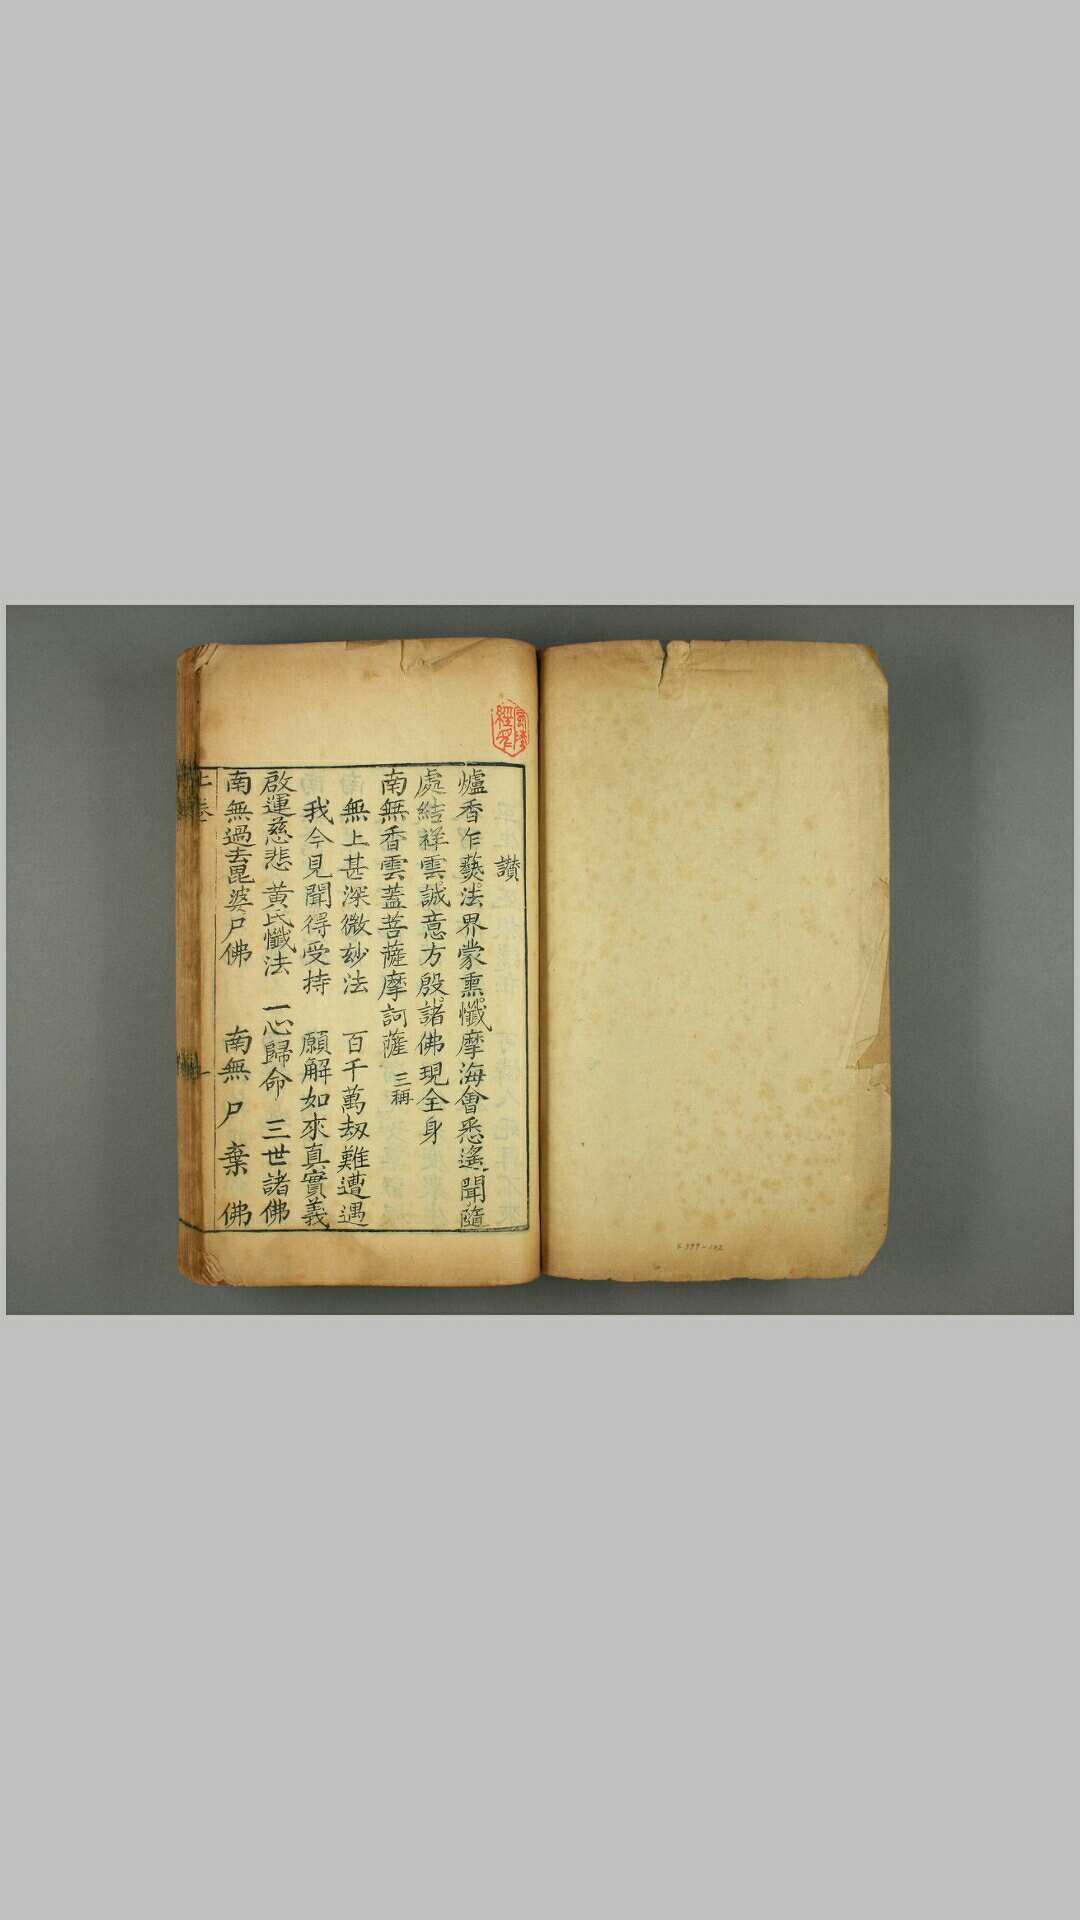 讃
爐香乍爇法界蒙熏懺摩海會悉遙聞隨
處結祥雲誠意方殷諸佛現全身
南無香雲蓋菩薩摩訶薩 三稱
無上甚深微玅法 百千萬刼難遭遇
我今見聞得受持 願解如來真實義
啟運慈悲 黄氏懺法 一心歸命 三世諸佛
南無過去毘婆尸佛 南無尸棄佛
上卷 一